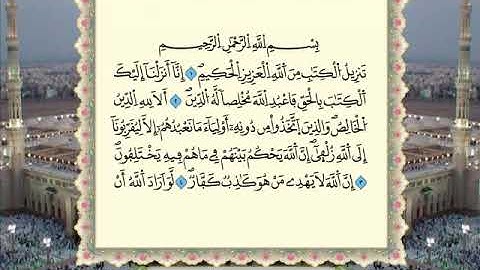 بِسْمِ اللَّهِ الرَّحْمَٰنِ الرَّحِيمِ
تَنزِيلُ الْكِتَابِ مِنَ اللَّهِ الْعَزِيزِ الْحَكِيمِ ١ إِنَّا أَنزَلْنَا إِلَيْكَ
الْكِتَابَ بِالْحَقِّ فَاعْبُدِ اللَّهَ مُخْلِصًا لَّهُ الدِّينَ ٢ أَلَا لِلَّهِ الدِّينُ
الْخَالِصُ وَالَّذِينَ اتَّخَذُوا مِن دُونِهِ أَوْلِيَاءَ مَا نَعْبُدُهُمْ إِلَّا لِيُقَرِّبُونَا
إِلَى اللَّهِ زُلْفَىٰ إِنَّ اللَّهَ يَحْكُمُ بَيْنَهُمْ فِي مَا هُمْ فِيهِ يَخْتَلِفُونَ
٣ إِنَّ اللَّهَ لَا يَهْدِي مَنْ هُوَ كَاذِبٌ كَفَّارٌ ٤ لَّوْ أَرَادَ اللَّهُ أَنْ